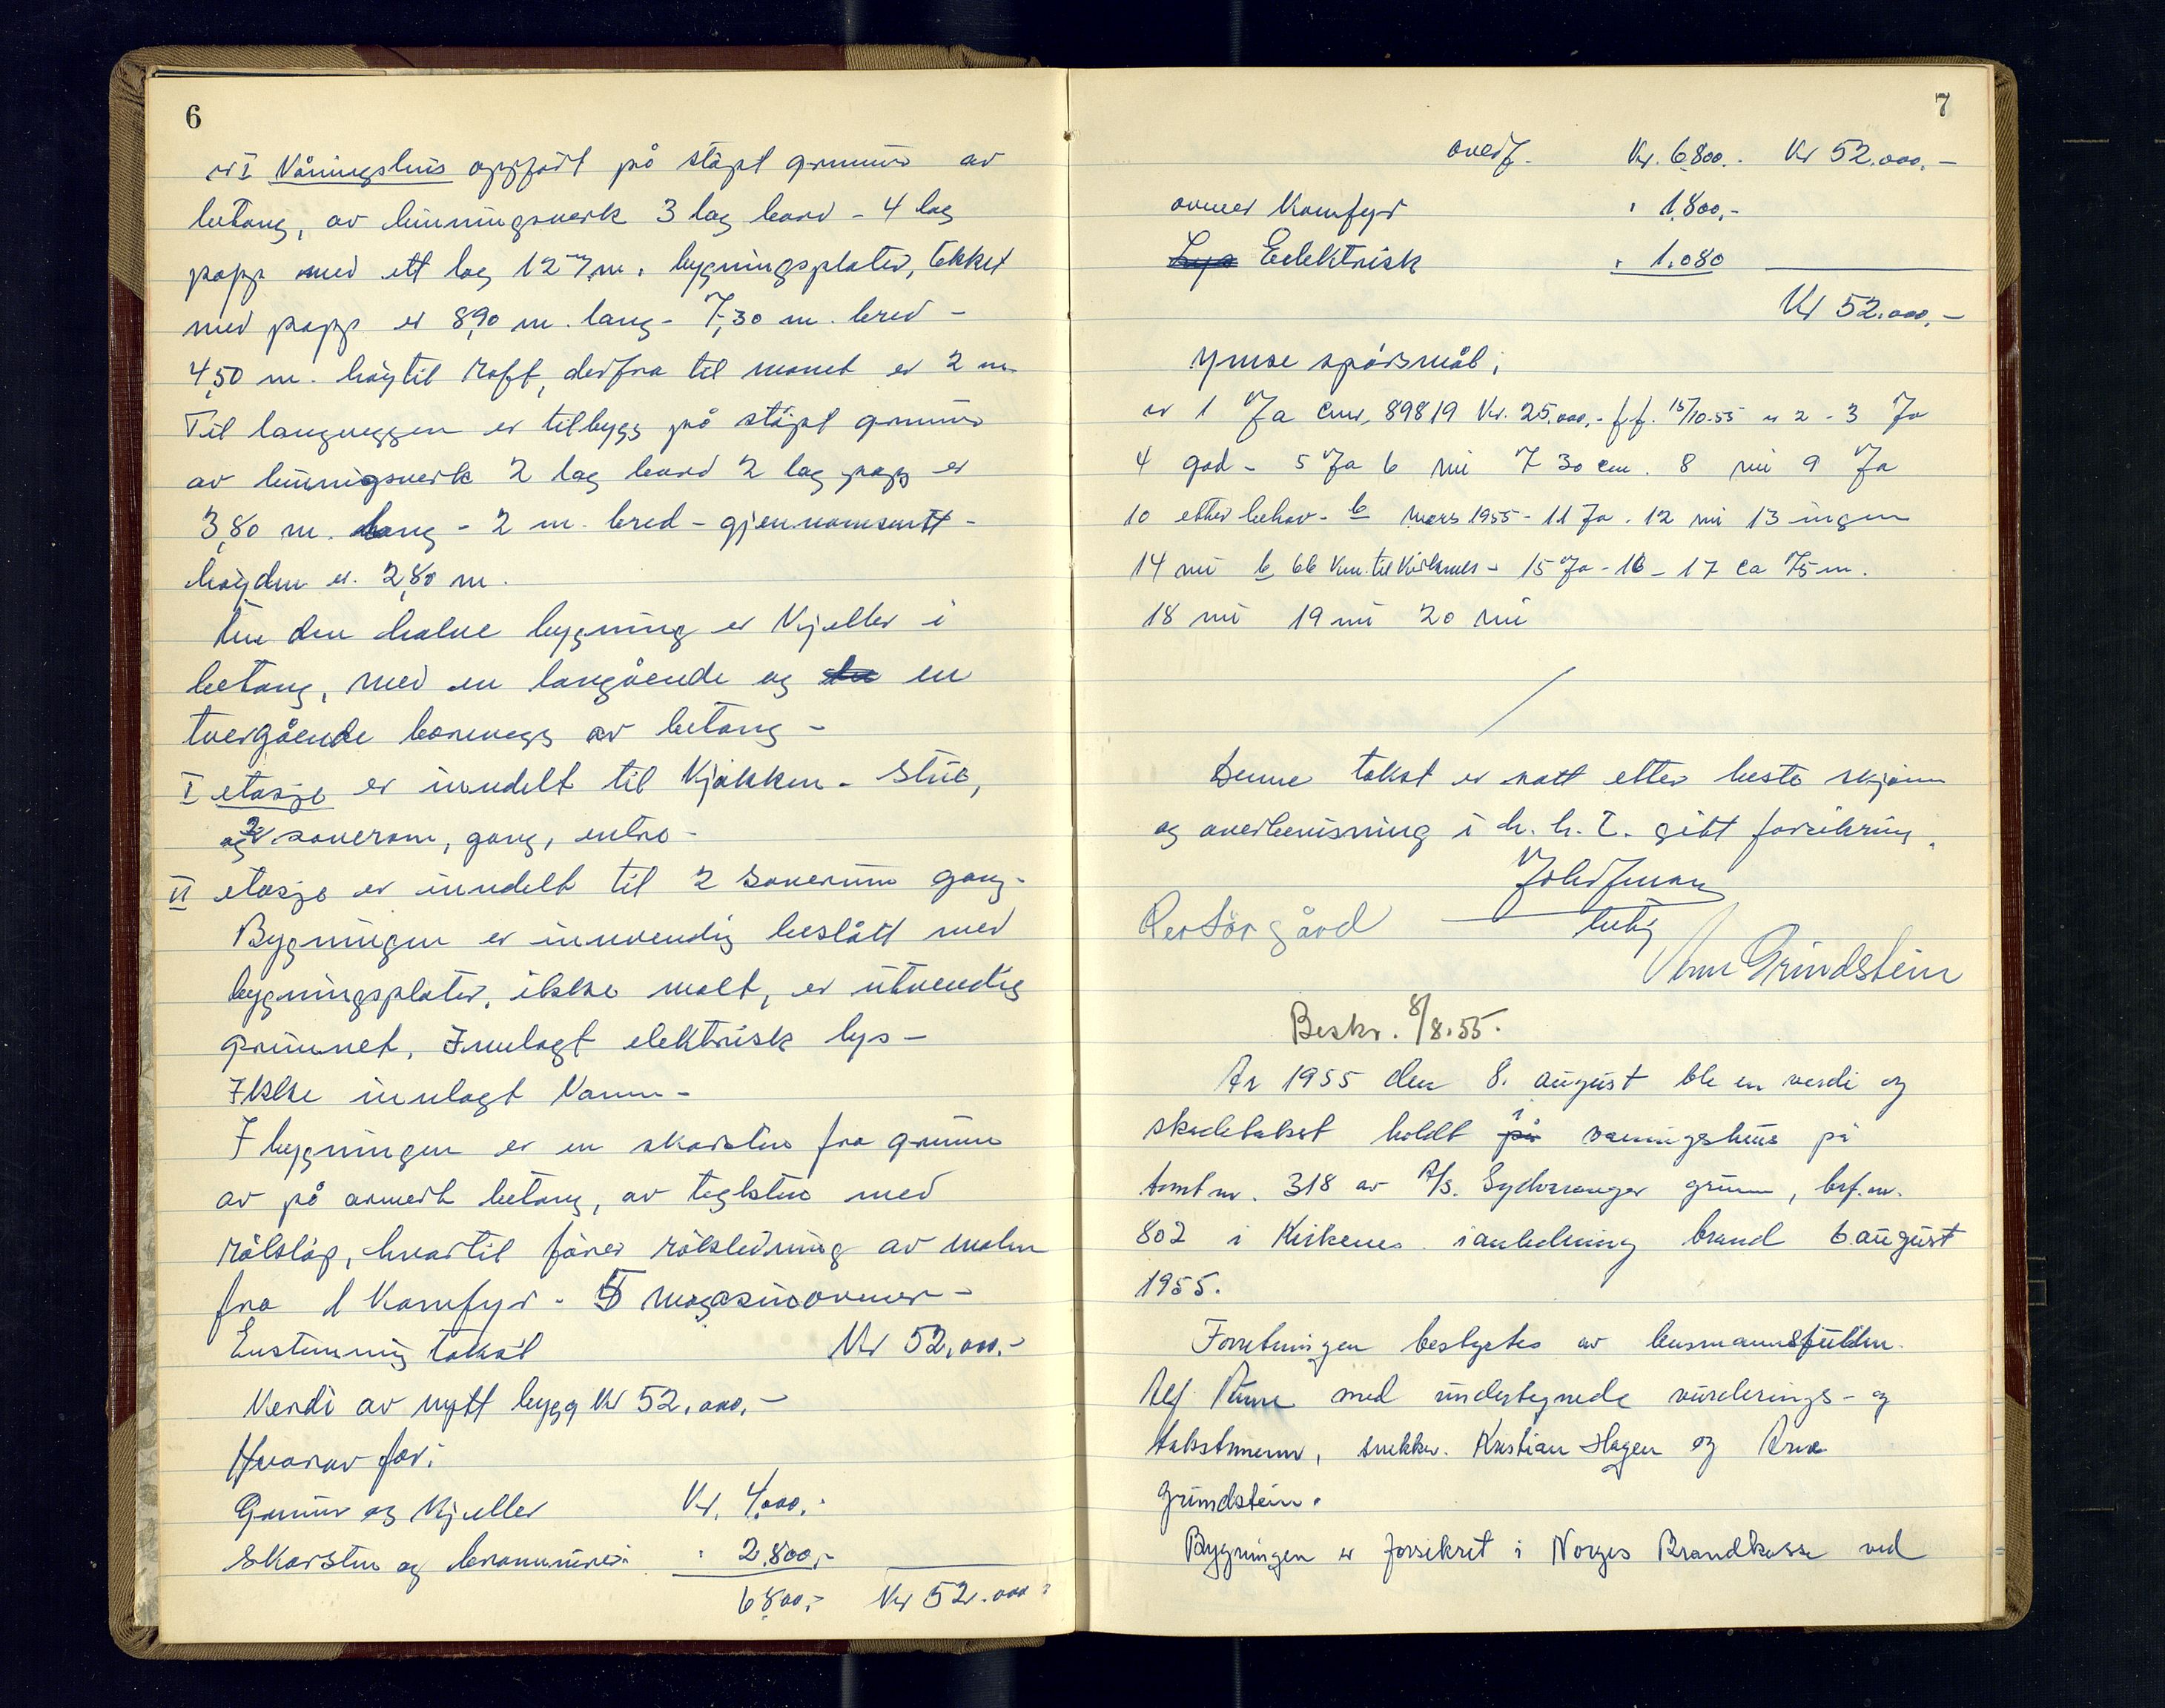 6
nr I Våningshus oppført på støpt grunn av
betong, av binningsverk 3 lag bord - 4 lag
papp med ett lag 12 m/m. bygningsplater, tekket
med papp er 8,90 m. lang - 7,30 m. bred -
4,50 m. høy til raft, derfra til mønet er 2 m
Til langveggen er tilbygg på støpt grunn
av binnigsverk 2 lag bord 2 lag papp er
3,80 m. lang - 2 m. bred - gjennomsnitt -
høyden er 2,80 m.
den halve bygning er Kjeller i
betong, med en langående og en
tvergående bærevegg av betong -
I etasje er inndelt til Kjøkken - stue,
og 2 soverom, gang, entre -
II etasje er inndelt til 2 soverum gang -
Bygningen er innvendig beslått med
bygningsplater, ikke malt, er utvendig
grunnet, Innlagt elektrisk lys -
Ikke innlagt Vann -
I bygningen er en skorsten fra grunn
av på armert betong, av teglsten med
røkløp, hvortil fører røkledning av
fra 1 Komfyr - 5 magasinovner -
Enstemmig takst Kr 52.000.-
Verdi av nytt bygg Kr 52.000.-
Hvorav for:
Grunn og Kjeller Kr. 4.000.-
Skorsten og brannmurer " 2.800.-
6.800.- Kr 52.000.-
7
overf. Kr. 6.800.- Kr 52.000.-
ovner Komfyr " 1.800.-
Lys Eelektrisk " 1.080
Kr 52.000.-
Ymse spørsmål;
nr 1 Ja 89819 Kr. 25.000.- f.f. 15/10-55 nr 2 - 3 Ja
4 god - 5 Ja 6 nei 7 30 cm. 8 nei 9 Ja
10 etter behov - b mars 1955 - 11 Ja. 12 nei 13 ingen
14 nei b 66 km. til Kirkenes - 15 Ja - 16 - 17 ca 75 m.
18 nei 19 nei 20 nei
Denne takst er satt etter beste skjønn
og overbevisning i h. h. t. gitt forsikring.
Per Sørgård
Arne Grindstein
Beskr. 8/8.55.
År 1955 den 8. august ble en verdi og
skadetakst holdt på i våningshus på
tomt nr. 318 av A/S. Sydvaranger grunn, brf.nr.
802 i Kirkenes i anledning brand 6 august
1955.
Forretningen bestyrtes av lensmannsfullm.
Alf med undertegnede vurderings- og
takstmenn, snekker. Kristian Hagen og Arne
Grindstein.
Bygningen er forsikret i Norges Brandkasse ved